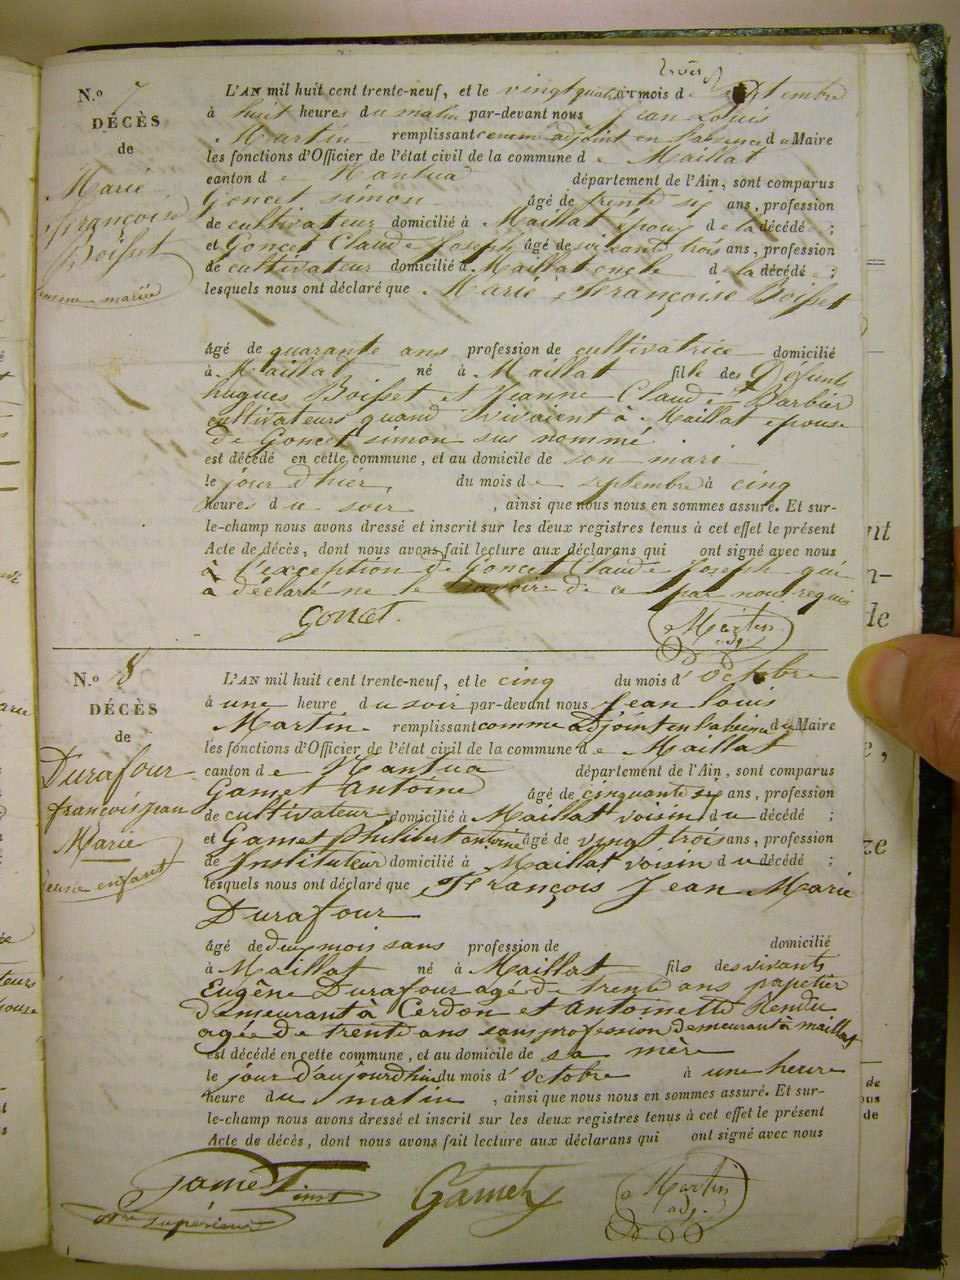 N.o 7
DÉCÈS
de
Marie
françoise
Boisset
femme mariée
L'AN mil huit cent trente-neuf, et le vingt quatre mois de Septembre
à huit heures du matin par-devant nous Jean Louis
Martin remplissant comme adjoint en l'absence du Maire
les fonctions d'Officier de l'état civil de la commune de Maillat
canton de Nantua département de l'Ain, sont comparus
Goncet simon âgé de trente six ans, profession
de cultivateur domicilié à Maillat époux de la décédé ;
et Goncet Claude Joseph âgé de soixante trois ans, profession
de cultivateur domicilié à Maillat oncle de la décédé e ;
lesquels nous ont déclaré que Marie Françoise Boisset
âgé de quarante ans profession de cultivatrice domicilié
à Maillat né à Maillat fille des Défunts
hugues Boisset et Jeanne Claude Barbier
cultivateurs quand vivaient à Maillat épouse
de Goncet simon sus nommé
est décédé en cette commune, et au domicile de son mari
le jour d'hier, du mois de septembre à cinq
heures du soir, ainsi que nous nous en sommes assuré. Et sur-
le-champ nous avons dressé et inscrit sur les deux registres tenus à cet effet le présent
Acte de décès, dont nous avons fait lecture aux déclarans qui ont signé avec nous
à l'exception de Goncet Claude Joseph qui
a déclaré ne le savoir de ce par nous requis
Goncet Martin adj.
N.o 8
DÉCÈS
de
Durafour
françois jean
Marie
jeune enfant
L'AN mil huit cent trente-neuf, et le cinq du mois d'octobre
à une heure du soir par-devant nous Jean louis
Martin remplissant comme adjoint en l'absence du Maire
les fonctions d'Officier de l'état civil de la commune de Maillat
canton de Nantua département de l'Ain, sont comparus
Gamet Antoine âgé de cinquante six ans, profession
de cultivateur domicilié à Maillat voisin du décédé ;
et Gamet Philibert antoine âgé de vingt trois ans, profession
de Instituteur domicilié à Maillat voisin du décédé ;
lesquels nous ont déclaré que François Jean Marie
Durafour
âgé de deux mois sans profession de domicilié
à Maillat né à Maillat fils des vivants
Eugêne Durafour agé de trente ans papetier
demeurant à Cerdon et Antoinette Rendu
agée de trente ans sans profession demeurant à maillat
est décédé en cette commune, et au domicile de sa mère
le jour d'aujourdhui du mois d'octobre à une heure
heure du matin, ainsi que nous nous en sommes assuré. Et sur-
le-champ nous avons dressé et inscrit sur les deux registres tenus à cet effet le présent
Acte de décès, dont nous avons fait lecture aux déclarans qui ont signé avec nous
Gamet inst Gamet Martin
supérieur adj.